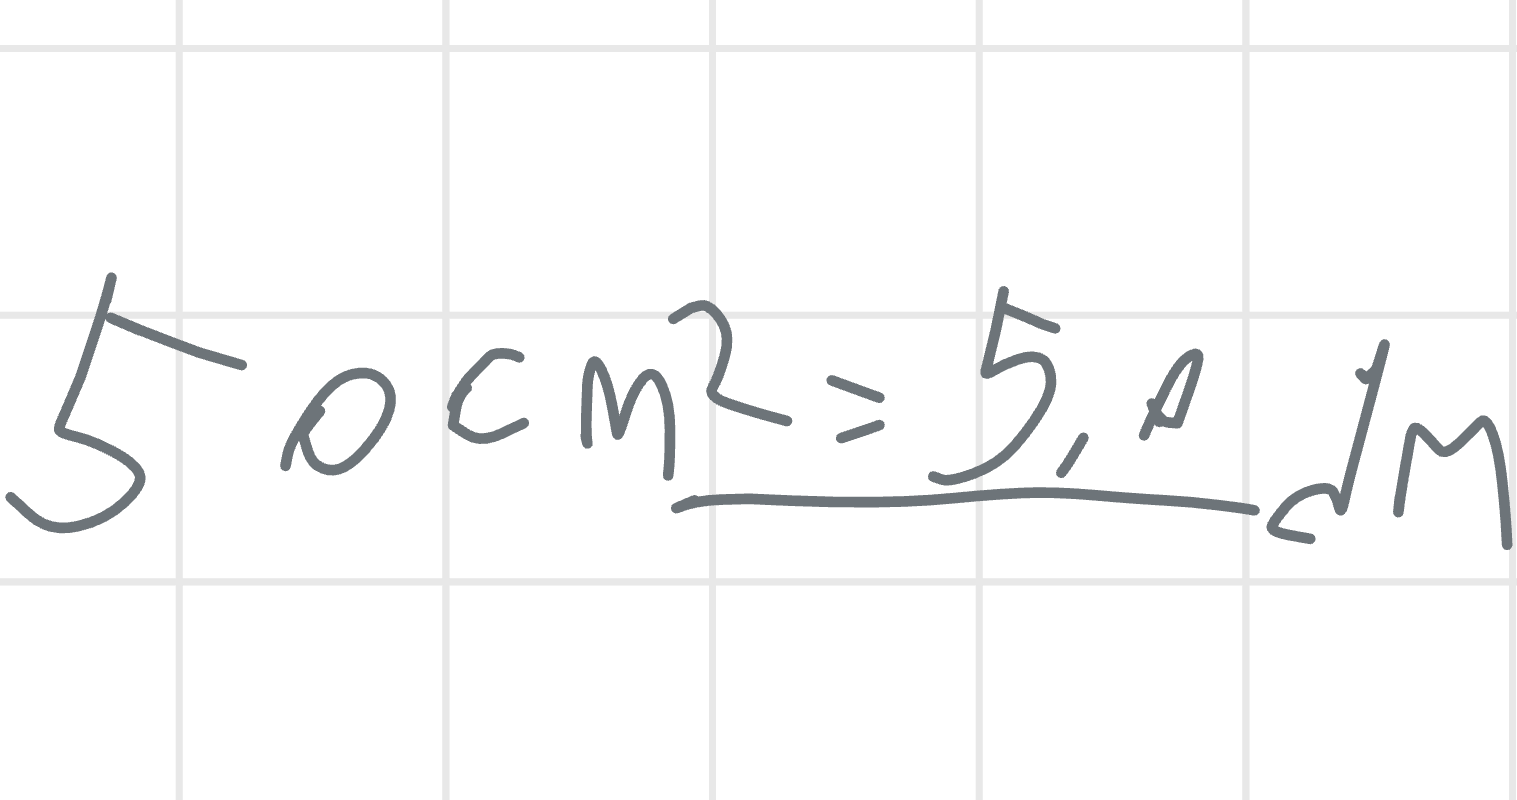 50cm²=5,0dm